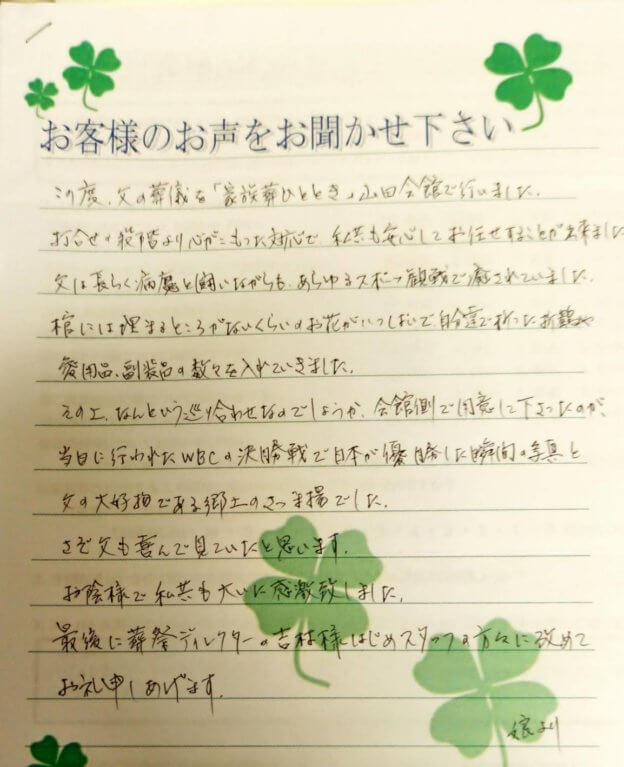 お客様のお声をお聞かせ下さい
この度、父の葬儀を「家族葬ひととき」山田会館で行いました。
打合せの段階より心がこもった対応で、私共も安心してお任せすることが出来まし
父は長らく病魔と闘いながらも、あらゆるスポーツ観戦で癒されていました。
棺には埋まるところがないくらいのお花がいっぱいで自分達で折った折鶴や
愛用品、副装品の数々を入れていきました。
その上、なんという巡り合わせなのでしょうか、会館側で用意して下さったのが、
当日に行われたWBCの決勝戦で日本が優勝した瞬間の写真と
父の大好物である郷土のさつま揚でした。
さぞ父も喜んで見ていたと思います。
お陰様で私共も大いに感激致しました。
最後に葬祭ディレクターの吉村様はじめスタッフの方々に改めて
お礼申しあげます。
娘より